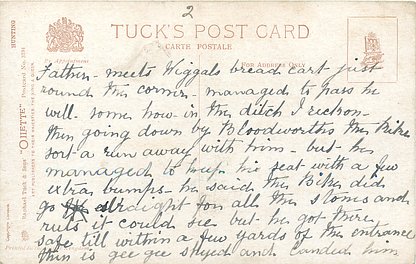 2
TUCK'S POST CARD
CARTE POSTALE
FOR ADDRESS ONLY
HUNTING
Raphael Tuck & Sons' "OILETTE"
Father - meets Wiggals bread cart just
round the corner - managed to pass he
will - some how in the ditch I reckon -
then going down by Bloodworths the Bike
sort a run away with him - but he
managed to keep his seat with a few
extra bumps - he said the Bike did
go straight for all the stones and
ruts it could see but he got there
safe till within a few yards of the entrance
then is gee gee shyed and landed him